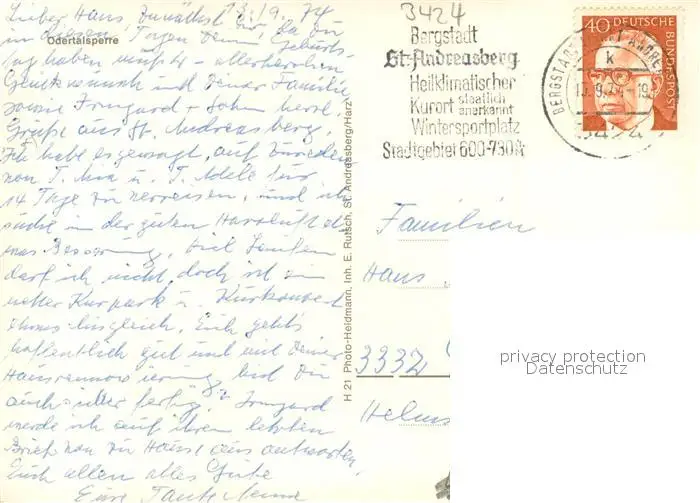 13./9. 74
Lieber Hans! Zunächst Dir, da Du
in diesen Tagen Deinen Geburts
Odertalsperre
tag haben
Glückwunsch und Deiner Familie
sowie Irmgard + Sohn herzl.
Grüße aus St. Andreasberg.
Ich habe es gewagt, auf Zureden
von T. u. T. Adele für
14 Tage zu verreisen, und ich
suche in der guten Harzluft et
was Besserung. Viel Laufen
darf ich nicht, doch ist ein
netter Kurpark u. Kurkonzert
etwas Ausgleich. Euch geht's
hoffentlich gut und mit Deiner
Hausrenovierung bist Du
auch sicher fertig? Irmgard
werde ich auf ihren letzten
Brief von zu Hause aus antworten.
Euch allen alles Gute
Eure Tante
H 21 Photo-Heidmann, Inh. E. Rutsch, St. Andreasberg/Harz
3424
Bergstadt
St-Andreasberg
Heilklimatischer
Kurort staatlich
anerkannt
Wintersportplatz
Stadtgebiet 600-730
40 DEUTSCHE BUNDESPOST
BERGSTADT
k
9.74-19
3424
Familien
Hans
3332
privacy protection
Datenschutz